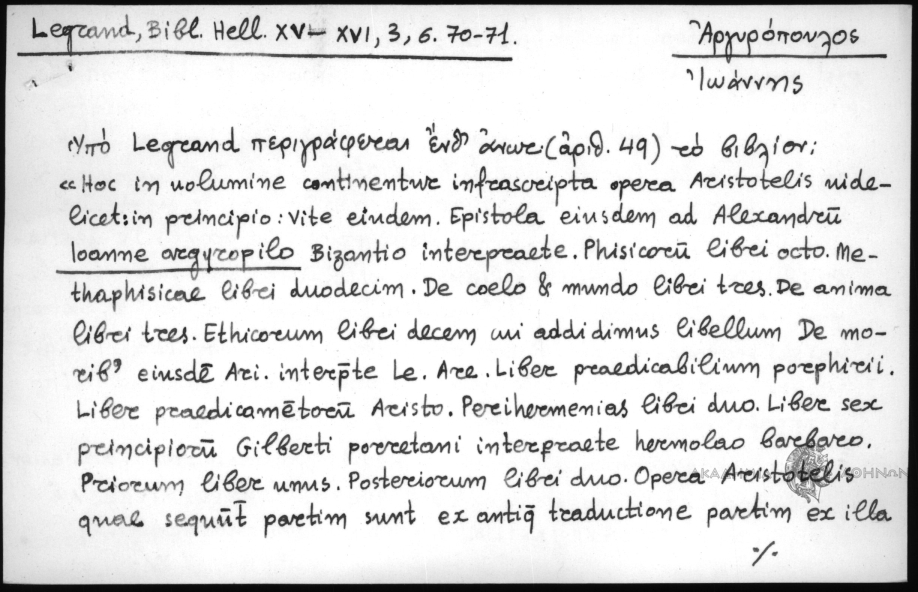 Legrand, Bibl. Hell. XV–XVI, 3, σ. 70-71.
Ἀργυρόπουλος
Ἰωάννης
Ὑπὸ Legrand περιγράφεται ἔνθ' ἄνωτ. (ἀριθ. 49) τὸ βιβλίον:
«Hoc in uolumine continentur infrascripta opera Aristotelis uide-
licet: in principio: Vite eiudem. Epistola eiusdem ad Alexandrū
Ioanne argyropilo Bizantio interpraete. Phisicorū libri octo. Me-
thaphisicae libri duodecim. De coelo & mundo libri tres. De anima
libri tres. Ethicorum libri decem cui addidimus libellum De mo-
ribꝰ eiusdē Ari. interp̄te Le. Are. Liber praedicabilium porphirii.
Liber praedicamētorū Aristo. Perihermenias libri duo. Liber sex
principiorū Gilberti porretani interpraete hermolao barbaro.
Priorum liber unus. Posteriorum libri duo. Opera Aristotelis
quae sequūt̄ partim sunt ex antiq̄ traductione partim ex illa
·/·
ΑΚΑΔΗΜΙΑ ΑΘΗΝΩΝ